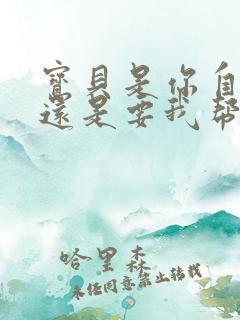 寶貝是你自
還是要我幫
哈里森
未经同意禁止转载